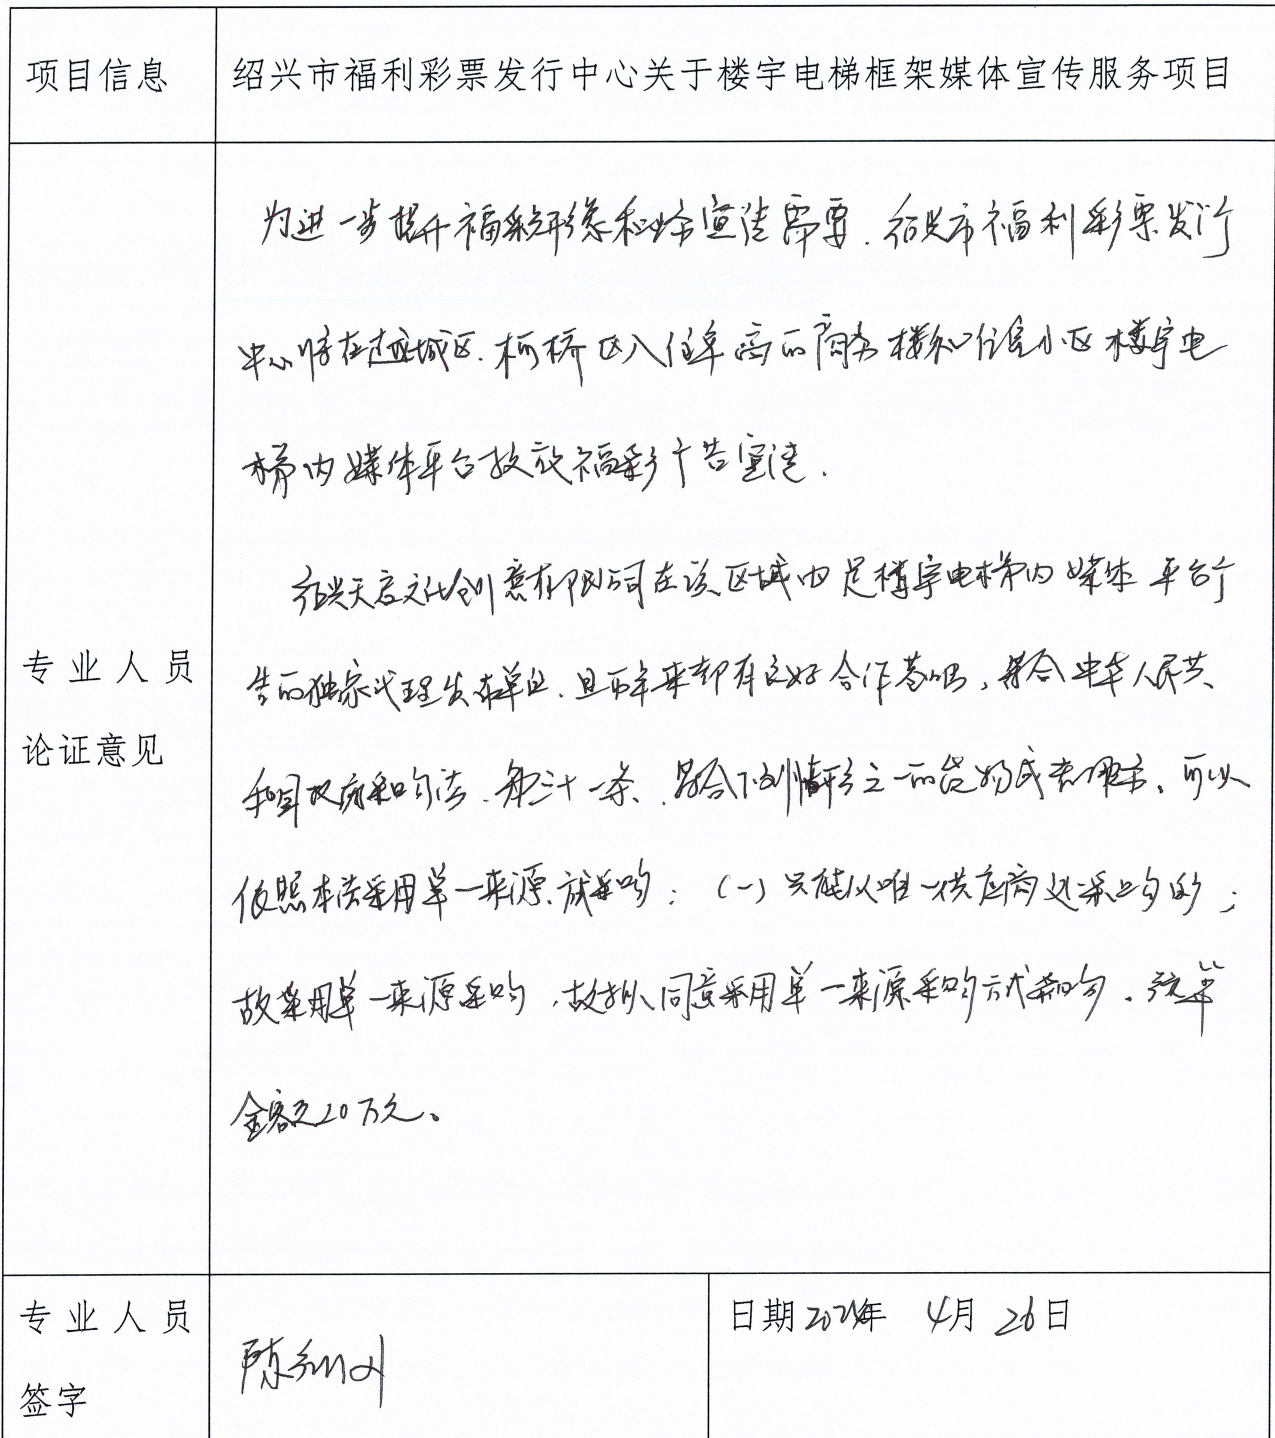 项目信息
绍兴市福利彩票发行中心关于楼宇电梯框架媒体宣传服务项目
专业人员
论证意见
为进一步提升福彩形象和业务宣传需要,绍兴市福利彩票发行
中心将在越城区、柯桥区入住率高的商务楼和住宅小区楼宇电
梯内媒体平台投放福彩广告宣传。
绍兴天启文化创意有限公司在该区域内是楼宇电梯内媒体平台广
告的独家代理发布单位,且历年来都有良好合作基础,符合中华人民共
和国政府采购法,第三十一条、符合下列情形之一的货物或者服务,可以
依照本法采用单一来源方式采购:(一)只能从唯一供应商处采购的;
故采用单一来源采购,故拟同意采用单一来源采购方式采购。预算
金额为20万元。
专业人员
签字
陈
日期 年 4月 26日